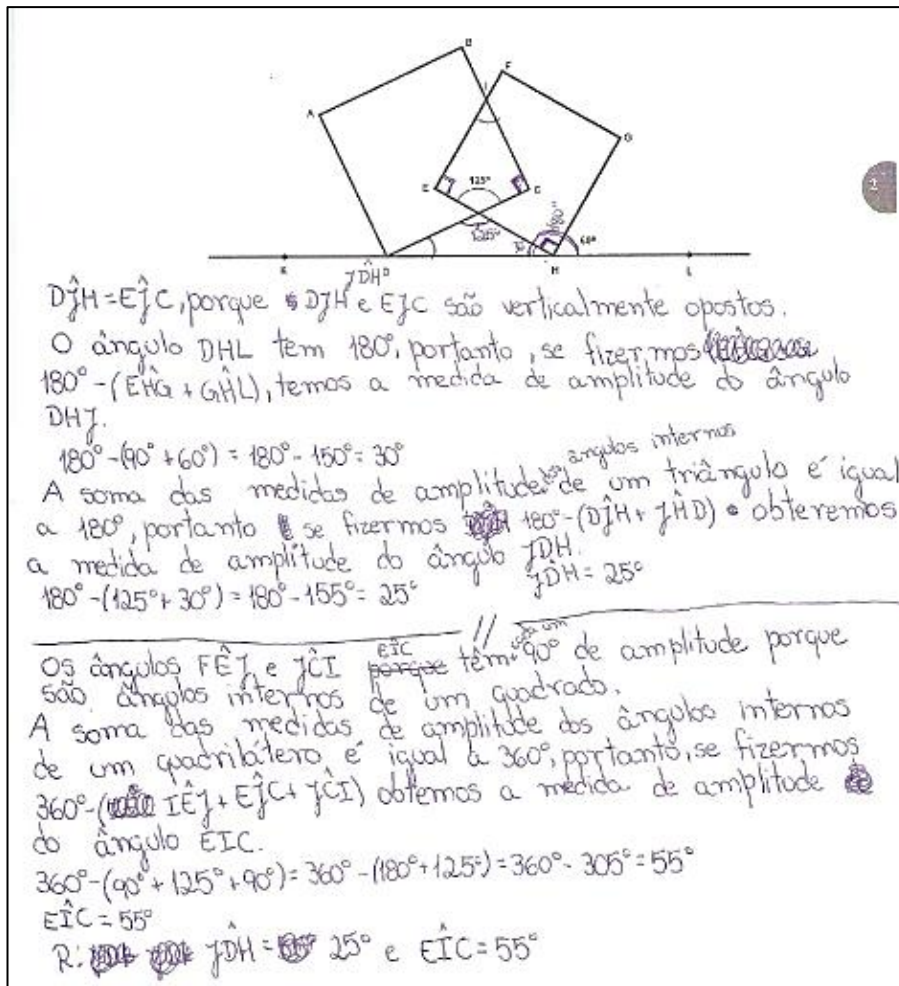 B
F
A
I
G
E
125°
C
2
125°
30°
90°
60°
K
H
L
JD̂H
DĴH = EĴC, porque DJH e EJC são verticalmente opostos.
O ângulo DHL tem 180°, portanto, se fizermos
180° - (EĤG + GĤL), temos a medida de amplitude do ângulo
DHJ.
180° - (90° + 60°) = 180° - 150° = 30°
A soma das medidas de amplitude dos ângulos internos de um triângulo é igual
a 180°, portanto se fizermos 180° - (DĴH + JĤD) obteremos
a medida de amplitude do ângulo JDH.
180° - (125° + 30°) = 180° - 155° = 25°
JD̂H = 25°
Os ângulos FÊJ e JĈI porque têm cada um 90° de amplitude porque
EÎC
são ângulos internos de um quadrado.
A soma das medidas de amplitude dos ângulos internos
de um quadrilátero é igual a 360°, portanto, se fizermos
360° - (IÊJ + EĴC + JĈI) obtemos a medida de amplitude
do ângulo EIC.
360° - (90° + 125° + 90°) = 360° - (180° + 125°) = 360° - 305° = 55°
EÎC = 55°
R: JD̂H = 25° e EÎC = 55°